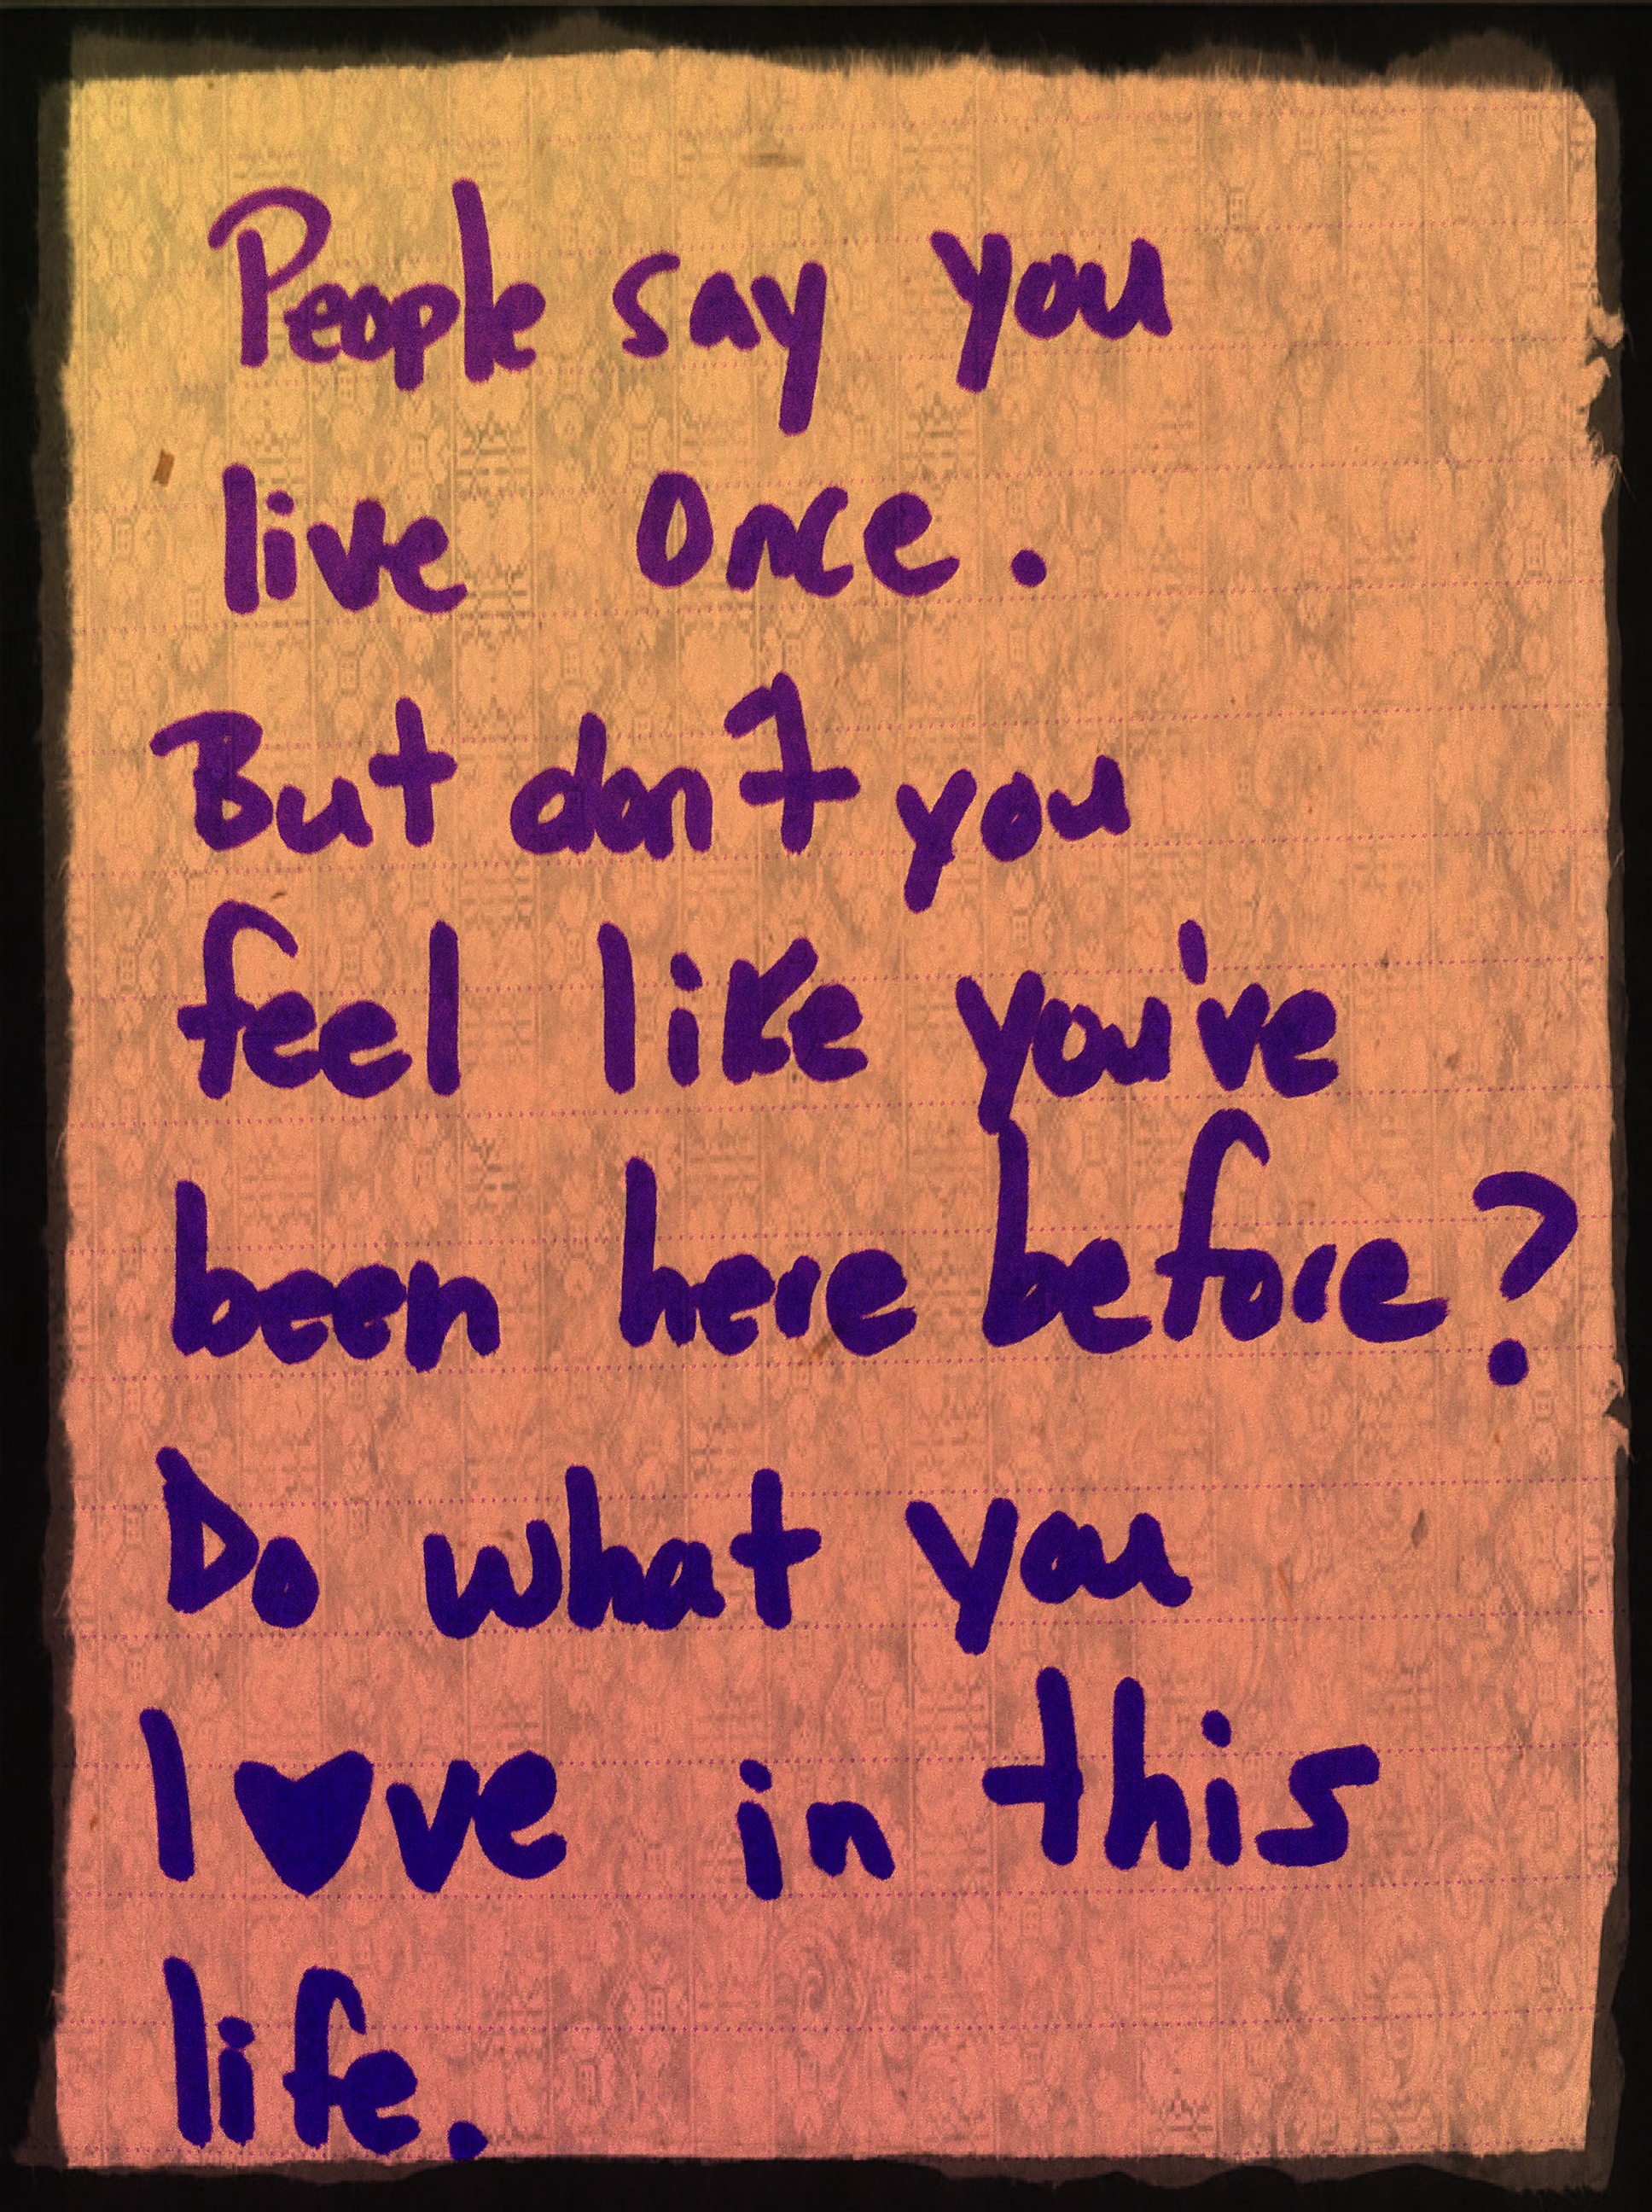 People say you
live once.
But don't you
feel like you've
been here before?
Do what you
l♥ve in this
life.